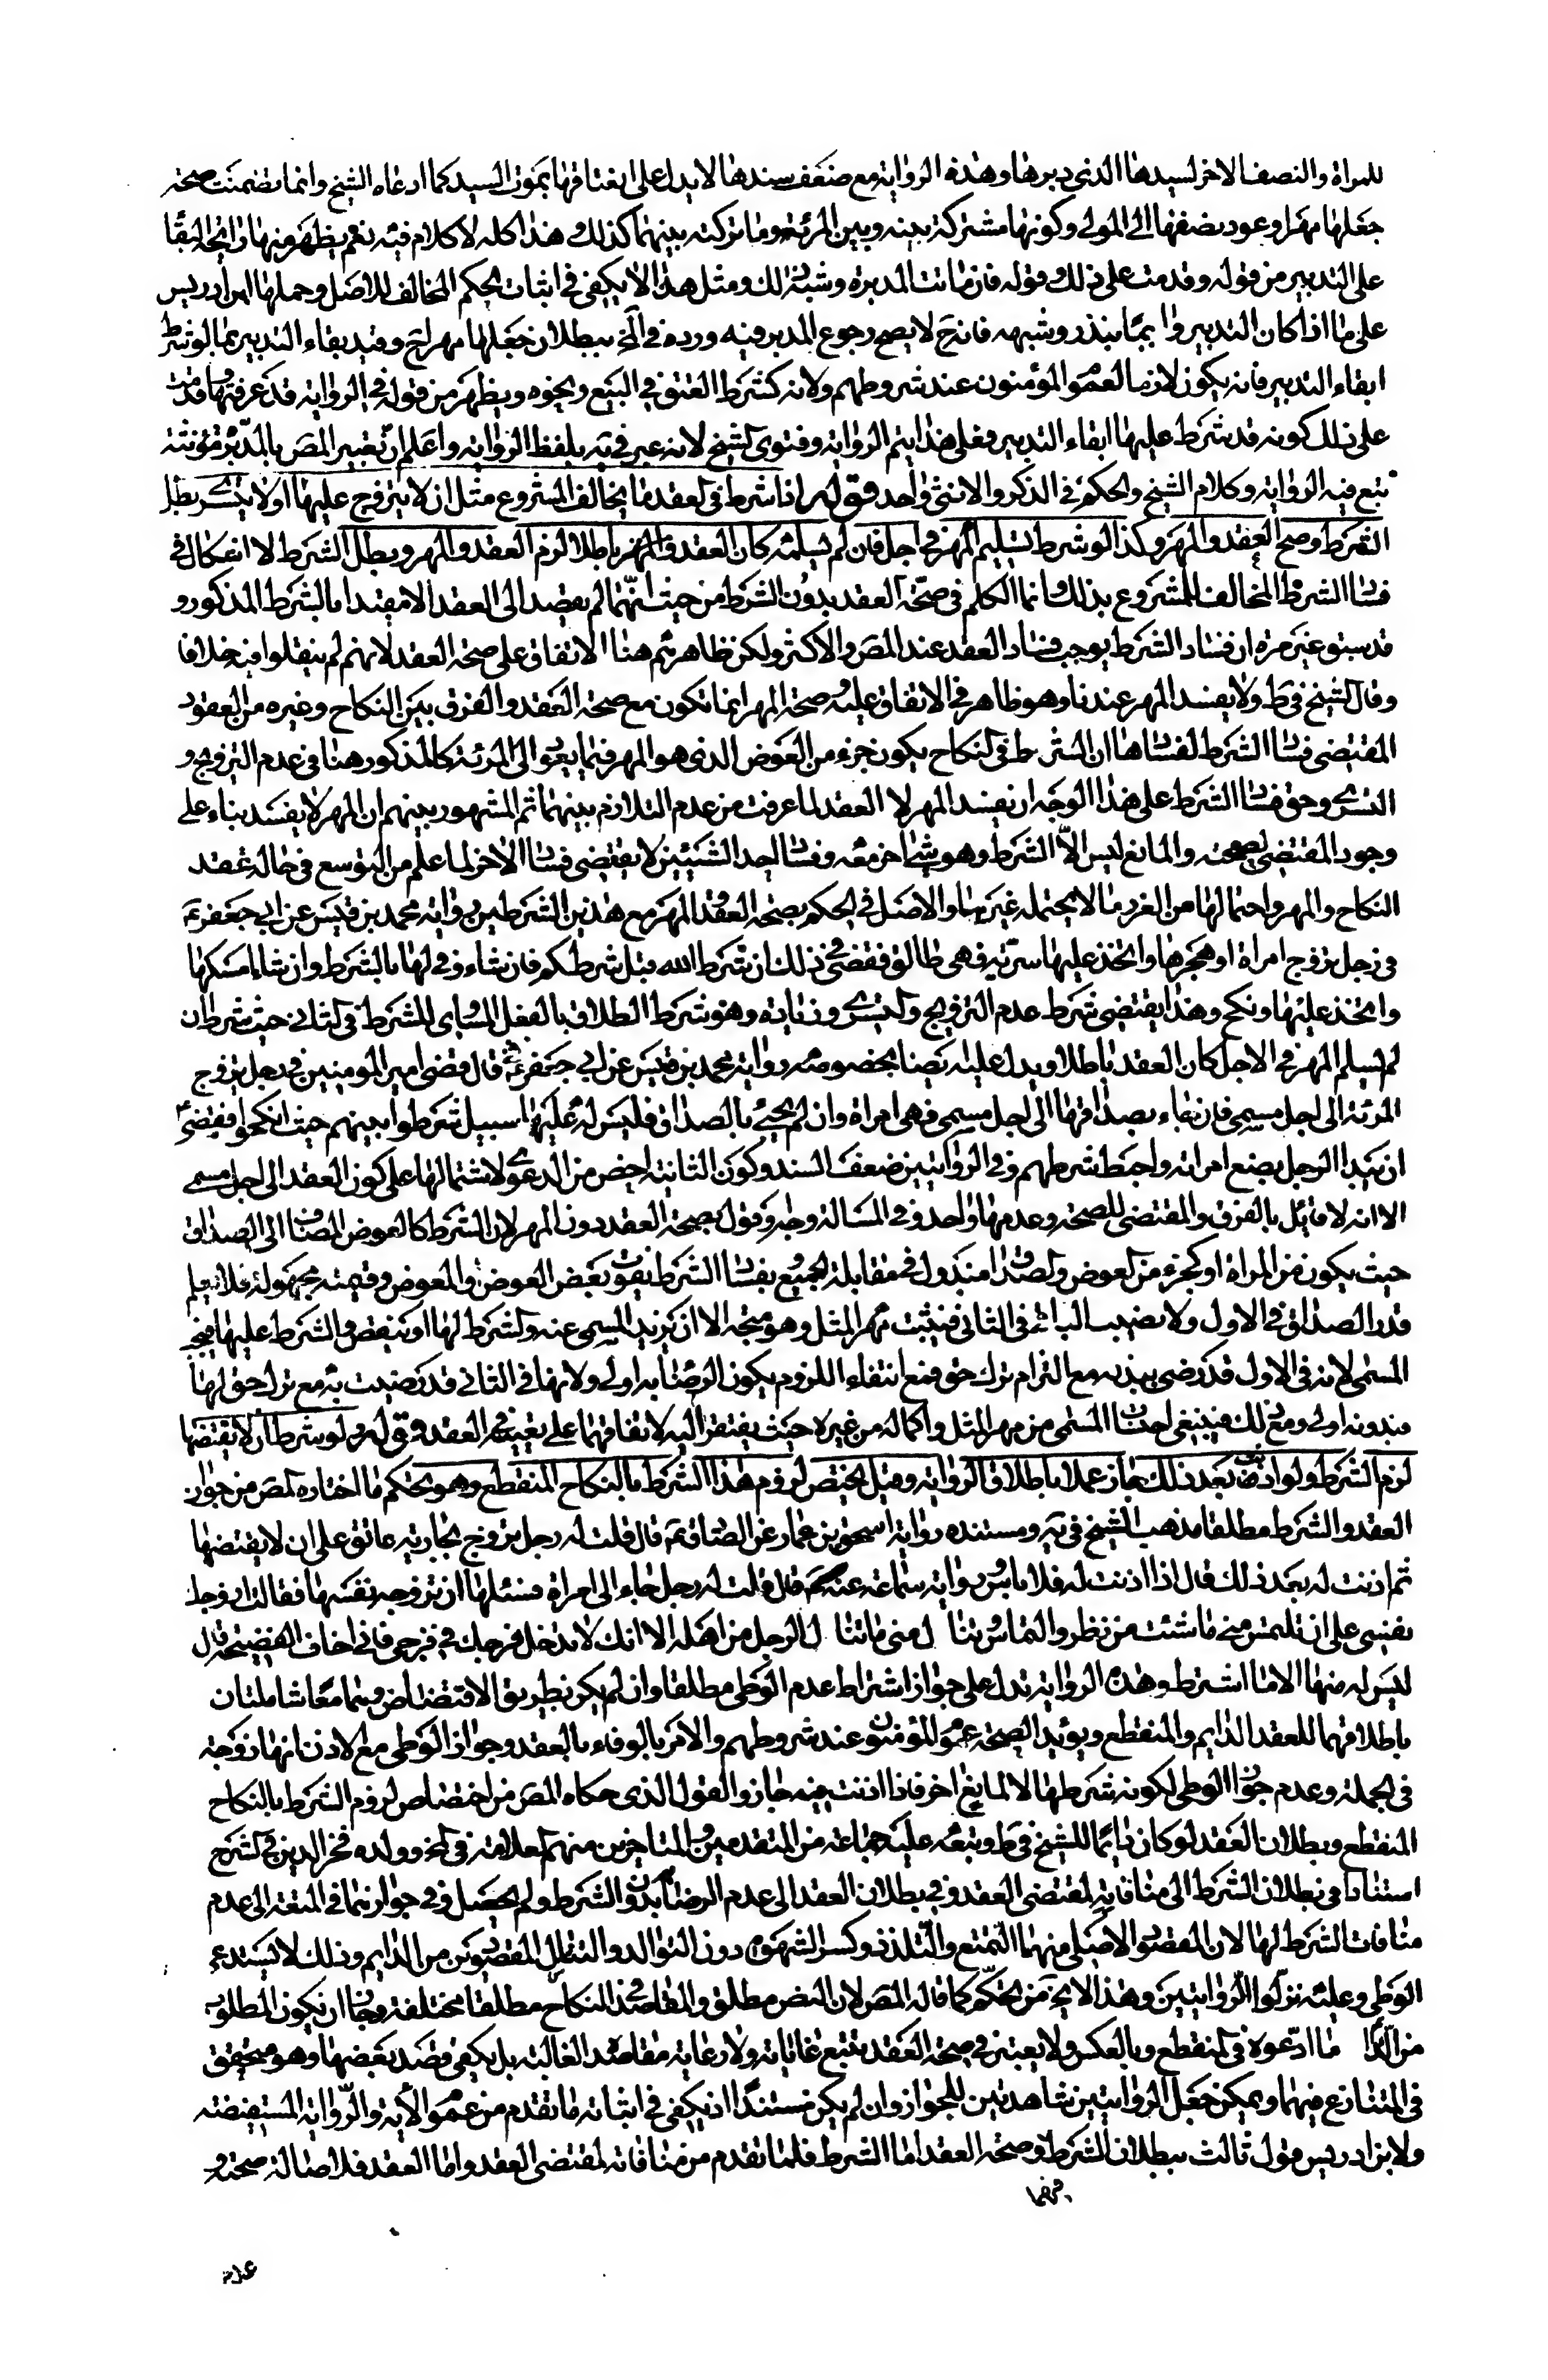 للمراة والنصف الاخر لسيدها الذي دبرها وهذه الرواية مع ضعف سندها لا يدل على انعتاقها بموت السيد كما ادعاه الشيخ وانما تضمنت صحة
جعلها مهرا وعود نصفها الى المولى وكونها مشتركة بينه وبين المرئة وما تركته بينهما كذلك وهذا كله لا كلام فيه نعم يظهر منها
على التدبير من قوله وقدمت على ذلك وقوله فان ماتت المدبرة وشبه ذلك ومثل هذا لا يكفي في اثبات الحكم المخالف للاصل وحملها ابن ادريس
على ما اذا كان التدبير واجبا بنذر وشبهه فانه ح لا يصح رجوع المدبر فيه ورده في ببطلان جعلها مهرا ح وقيد بقاء التدبير بما لو شرط
ابقاء التدبير فانه يكون لازما لعموم المؤمنون عند شروطهم ولانه كشرط العتق في البيع ونحوه ويظهر من قوله في الرواية قد عرفتها وقدمت
على ذلك كونه قد شرط عليها ابقاء التدبير فعلى هذا يتم الرواية وفتوى الشيخ لانه عبر في يه بلفظ الرواية واعلم ان تعبير المص بالمدبرة مؤنثة
تبع فيه الرواية وكلام الشيخ والحكم في الذكر والانثى واحد قوله اذا شرط في العقد ما يخالف المشروع مثل ان لا يتزوج عليها او لا يتسرى بطل
الشرط وصح العقد والمهر وكذا لو شرط تسليم المهر في اجل فان لم يسلمه كان العقد والمهر باطلا لزم العقد والمهر وبطل الشرط لا اشكال في
فساد الشرط المخالف للمشروع بذلك وانما الكلام في صحة العقد بدون الشرط من حيث انهما لم يقصدا الى العقد الا مقيدا بالشرط المذكور و
قد سبق غير مرة ان فساد الشرط يوجب فساد العقد عند المص والاكثر ولكن ظاهرهم هنا الاتفاق على صحة العقد لانهم لم ينقلوا فيه خلافا
وقال الشيخ في ط ولا يفسد المهر عندنا وهو ظاهر في الاتفاق عليه وصحة المهر انما تكون مع صحة العقد والفرق بين النكاح وغيره من العقود
المقتضي فساد الشرط لفسادها ان الشرط في النكاح يكون جزء من العوض الذي هو المهر فيما يعود الى المرئة كالمذكور هنا في عدم التزويج و
التسري وحق فساد الشرط على هذا الوجه ان يفسد المهر لا العقد لما عرفت من عدم التلازم بينهما ثم المشهور بينهم ان المهر لا يفسد بناء على
وجود المقتضي لصحته والمانع ليس الا الشرط وهو شيء اخر معه وفساد احد الشيئين لا يقتضي فساد الاخر لما علم من التوسع في حالة عقد
النكاح والمهر واحتمالها من الغرر ما لا يحتمله غيرهما والاصل في الحكم بصحة العقد والمهر مع هذين الشرطين رواية محمد بن قيس عن ابي جعفر ع
في رجل تزوج امراة او هجرها واتخذ عليها سرية فهي طالق فقضى في ذلك ان شرط الله قبل شرطكم فان شاء وفى لها بالشرط وان شاء امسكها
واتخذ عليها ونكح وهذا يقتضي شرط عدم التزويج والتسري وزيادة وهو شرط الطلاق بالفعل المنافي للشرط في الثاني حيث شرط ان
لم يسلم المهر في الاجل كان العقد باطلا ويدل عليه ايضا بخصوصه رواية محمد بن قيس عن ابي جعفر ع قال قضى امير المومنين في رجل تزوج
المرئة الى اجل مسمى فان جاء بصداقها الى اجل مسمى فهي امراة وان لم يجئ بالصداق فليس له عليها سبيل شرطوا بينهم حيث انكحوا فقضى
ان بيد الرجل بضع امراته واحبط شرطهم وفي الروايتين ضعف السند وكون الثانية اخص من الدعوى لاشتمالها على كون العقد الى اجل مسمى
الا انه لا قايل بالفرق والمقتضي للصحة وعدمها واحد وفي المسالة وجه وقول بصحة العقد دون المهر لان الشرط كالعوض المضاف الى الصداق
حيث يكون من المراة او كجزء من العوض والصداق مبذول في مقابلة الجميع بفساد الشرط يفوت بعض العوض او المعوض وقيمته مجهولة فلا يعلم
قدر الصداق في الاول ولا نصيب الباقي في الثاني فيثبت مهر المثل وهو متجه الا ان يزيد المسمى عنه والشرط لها او ينقص والشرط عليها فيجب
المسمى لانه في الاول قد رضي ببذله مع التزام ترك حق فمع انتفاء اللزوم يكون الرضا به اولى ولانها في الثاني قد رضيت به مع ترك حق لها
فبدونه اولى ومع ذلك فينبغي احتساب المسمى من مهر المثل واكماله من غيره حيث يفتقر اليه لاتفاقهما على تعيينه في العقد قوله ولو شرط ان لا يفتضها
لزم الشرط ولو اذنت بعد ذلك جاز عملا باطلاق الرواية وقيل يختص لزوم هذا الشرط بالنكاح المنقطع وهو تحكم ما اختاره المص من جواز
العقد والشرط مطلقا مذهب الشيخ في يه ومستنده رواية اسحق بن عمار عن الصادق ع قال قلت له رجل تزوج بجارية عاتق على ان لا يفتضها
ثم اذنت له بعد ذلك قال اذا اذنت له فلا باس ورواية سماعة عنه ع قال قلت له رجل جاء الى امراة فسئلها ان تزوجه نفسها فقالت ازوجك
نفسي على ان تلتمس مني ما شئت من نظر والتماس وتنال مني ما ينال الرجل من اهله الا انك لا تدخل فرجك في فرجي فاني اخاف الفضيحة قال
ليس له منها الا ما اشترط وهذه الرواية تدل على جواز اشتراط عدم الوطي مطلقا وان لم يكن بطريق الافتضاض وهما معا شاملتان
باطلاقهما للعقد الدايم والمنقطع ويؤيد الصحة عموم المؤمنون عند شروطهم والامر بالوفاء بالعقد وجواز الوطي مع الاذن انها زوجة
في الجملة وعدم جواز الوطي لكونه شرطها لا لمانع اخر فاذا اذنت فيه جاز والقول الذي حكاه المص من اختصاص لزوم الشرط بالنكاح
المنقطع وبطلان العقد لو كان دايما للشيخ في ط وتبعه عليه جماعة من المتقدمين والمتاخرين منهم العلامة في وولده فخر الدين في الشرح
استنادا في بطلان الشرط الى منافاته لمقتضى العقد وفي بطلان العقد الى عدم الرضا بدون الشرط ولم يحصل وفي جوازهما في المتعة الى عدم
منافات الشرط لها لان المقصود الاصلي منهما التمتع والتلذذ وكسر الشهوة دون التوالد والتناسل المقصودين من الدايم وذلك لا يستدعي
الوطي وعليه نزلوا الروايتين وهذا لا يخ من تحكم كما قاله المص لان النص مطلق والمقاصد في النكاح مطلقا مختلفة وجاز ان يكون المطلوب
من الدايم ما ادعوه في المنقطع وبالعكس ولا يعتبر في صحة العقد تتبع غاياته ولا رعاية مقاصد الغالبة بل يكفي قصد بعضها وهو متحقق
في المتنازع فيهما ويمكن جعل الروايتين شاهدتين للجواز وان لم يكن مستندا اذ يكفي في اثباته ما تقدم من عموم الاية والرواية المستفيضة
ولابن ادريس قول ثالث ببطلان الشرط وصحة العقد اما الشرط فلما تقدم من منافاته لمقتضى العقد واما العقد فلاصالة صحته و